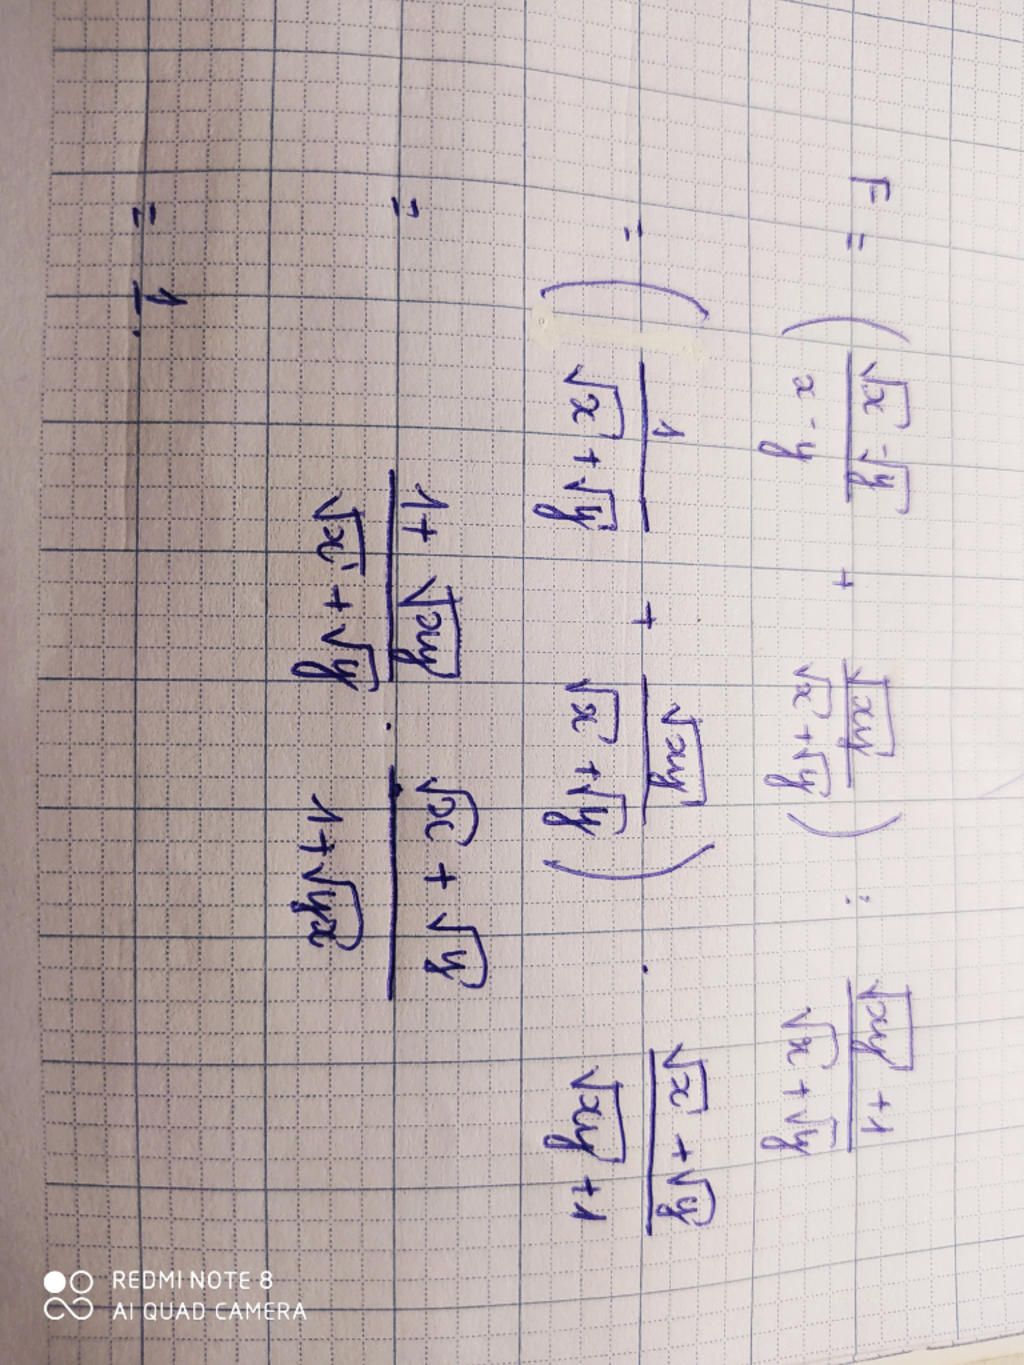 F = ( (√x - √y)/(x - y) + √xy/(√x + √y) ) : (√xy + 1)/(√x + √y)
= ( 1/(√x + √y) + √xy/(√x + √y) ) · (√x + √y)/(√xy + 1)
= (1 + √xy)/(√x + √y) · (√x + √y)/(1 + √yx)
= 1.
REDMI NOTE 8
AI QUAD CAMERA